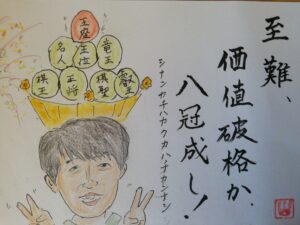 至難、
価値破格か、
八冠成し！
シナンカチハカクカハチカンナシ
王座
名人
王位
竜王
棋王
王将
棋聖
叡王